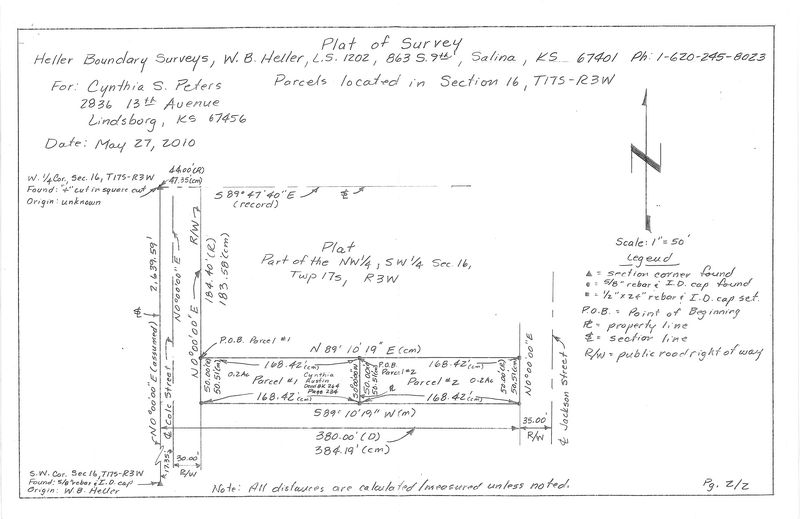 Plat of Survey
Heller Boundary Surveys, W. B. Heller, L.S. 1202, 863 S. 9th, Salina, KS 67401 Ph: 1-620-245-8023
For: Cynthia S. Peters
Parcels located in Section 16, T17S-R3W
2836 13th Avenue
Lindsborg, KS 67456
Date: May 27, 2010
W. 1/4 Cor., Sec. 16, T17S-R3W
Found: "+" cut in square cut
Origin: unknown
44.00'(R)
47.35'(cm)
S 89° 47' 40" E
(record)
℄
N
Scale: 1" = 50'
Legend
▲ = section corner found
= 5/8" rebar & I.D. cap found
= 1/2" x 24" rebar & I.D. cap set.
P.O.B. = Point of Beginning
℞ = property line
℄ = section line
R/W = public road right of way
Plat
Part of the NW 1/4, SW 1/4 Sec. 16,
Twp 17s, R3W
2,639.59'
N 0° 00' 00" E (assumed)
℄
℄ Cole Street
N 0° 00' 00" E
R/W
N 0° 00' 00" E
184.40' (R)
183.58' (cm)
P.O.B. Parcel #1
N 89° 10' 19" E (cm)
168.42' (cm)
168.42' (cm)
50.00'(R)
50.51'(cm)
0.2 Ac
Parcel #1
Cynthia
Austin
Deed BK 264
Page 234
50.51'(cm)
P.O.B.
Parcel #2
Parcel #2
0.2 Ac
50.00'(R)
50.51'(cm)
168.42' (cm)
168.42' (cm)
S 89° 10' 19" W (m)
N 0° 00' 00" E
℄ Jackson Street
35.00'
R/W
380.00' (D)
384.19' (cm)
S.W. Cor. Sec 16, T17S-R3W
Found: 5/8" rebar & I.D. cap
Origin: W. B. Heller
17.35'
30.00'
R/W
Note: All distances are calculated/measured unless noted.
Pg. 2/2